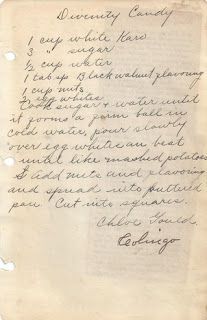 Divinity Candy
1 cup white Karo
3 " sugar
1/2 cup water
1 tab sp Black walnut flavouring
1 cup nuts
2 egg whites
Cook sugar & water until
it forms a firm ball in
cold water, pour slowly
over egg whites an beat
until like mashed potatoes
& add nuts and flavouring
and spread into buttered
pan. Cut into squares.
Chloe Gould